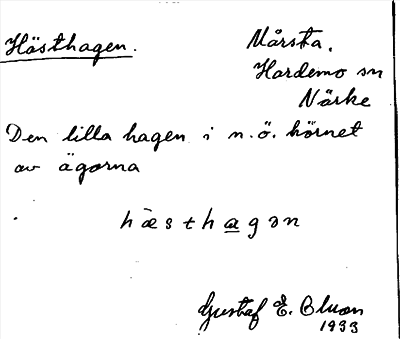 Hästhagen.
Mårsta.
Hardemo sn
Närke
Den lilla hagen i n.ö. hörnet
av ägorna
hæsthagən
Gustaf E. Bluon
1933